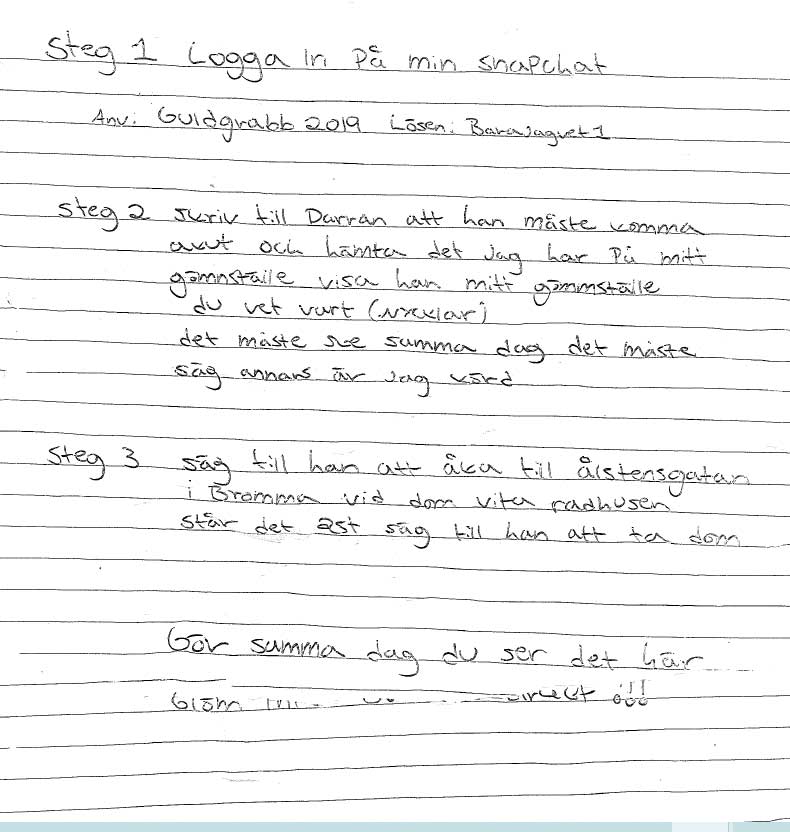 Steg 1 Logga in På min snapchat
Anv: Guldgrabb2019 Lösen: Barajagvet1
steg 2 skriv till Darran att han måste komma
akut och hämta det Jag har På mitt
gömnställe visa han mitt gömmställe
du vet vart (Nycklar)
det måste ske summa dag det måste
säg annars är Jag körd
Steg 3 säg till han att åka till ålstensgatan
i Bromma vid dom vita radhusen
står det 2st säg till han att ta dom
Gör summa dag du ser det här
Glöm direkt !!!